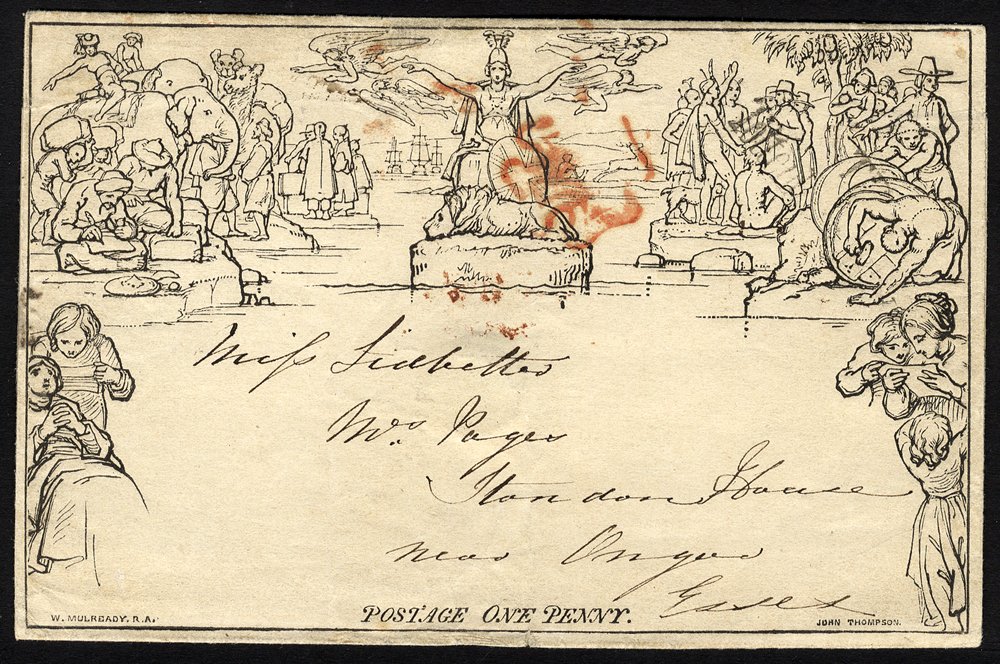 Miss Lidbetter
Mrs Pages
Stondon House
near Ongar
Essex
W. MULREADY, R.A.
POSTAGE ONE PENNY.
JOHN THOMPSON.